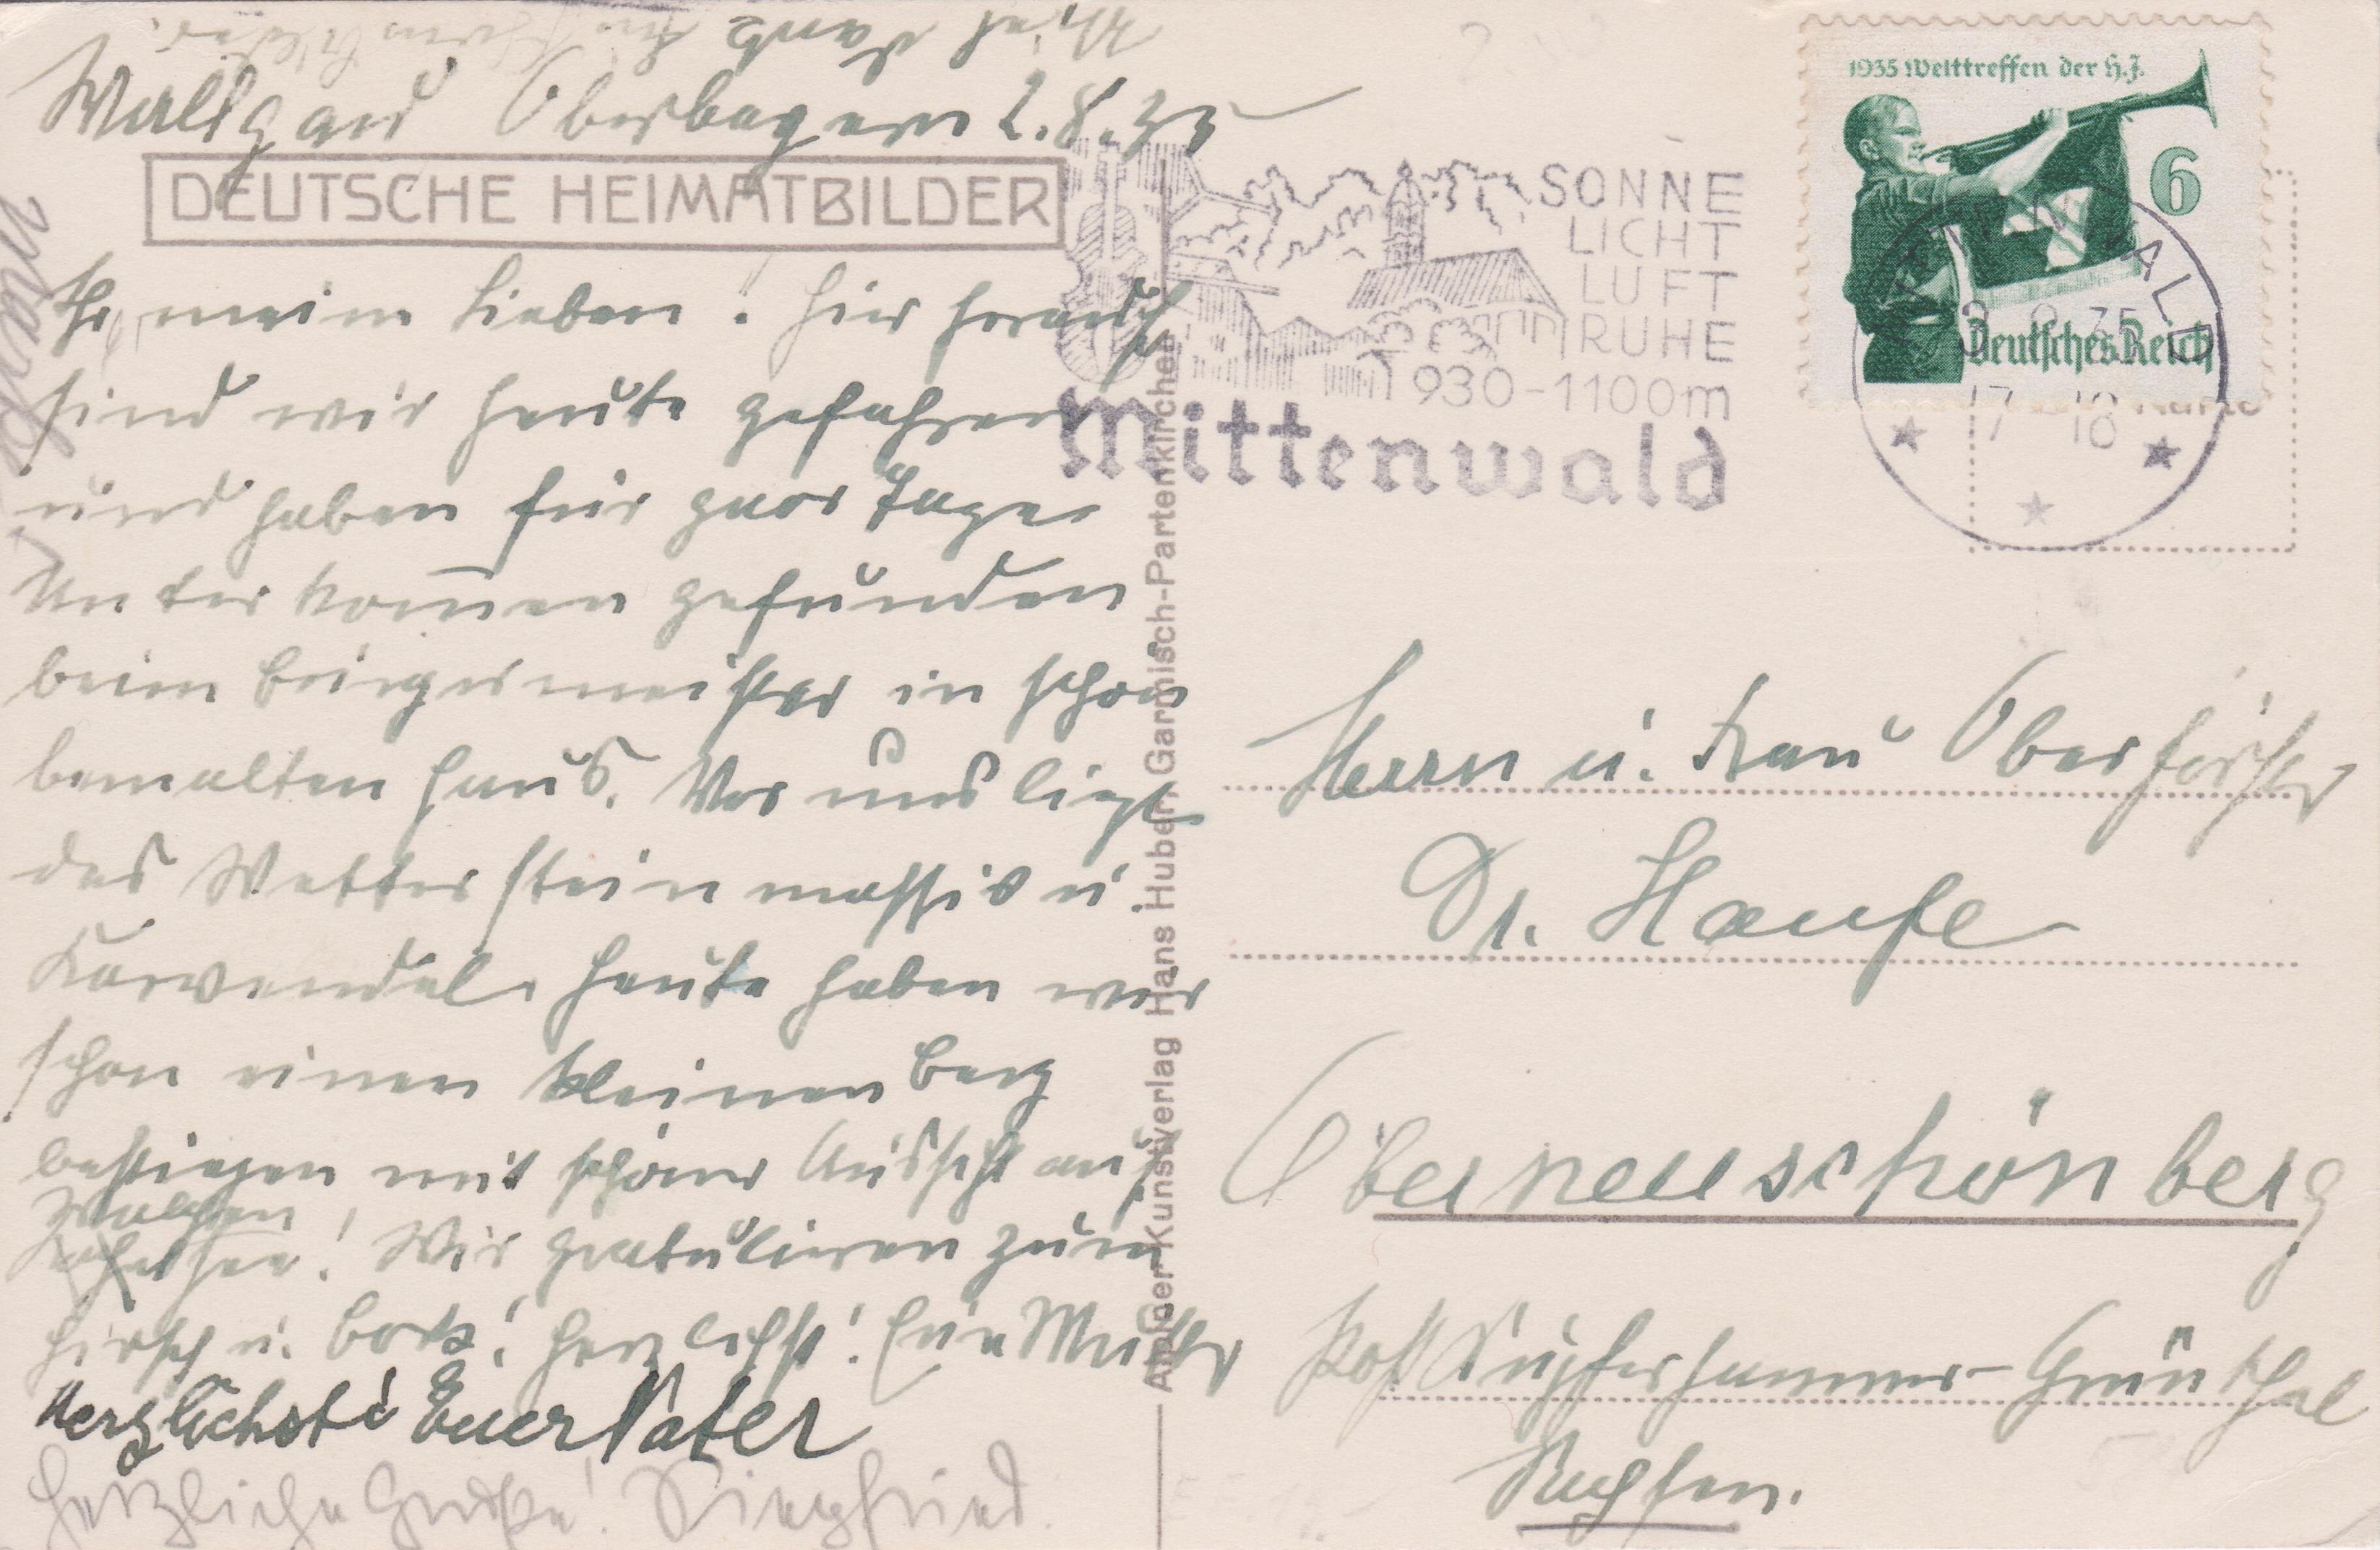 Wallgau Oberbayern 2.8.35
DEUTSCHE HEIMATBILDER
Ihr meine Lieben! Hier herauf
sind wir heute gefahren
und haben für paar Tage
Unterkommen gefunden
beim Bürgermeister in schön
bemalten Haus. Vor uns liegt
das Wettersteinmassiv u.
Karwendel. Heute haben wir
schon einen kleinen Berg
bestiegen mit schöner Aussicht auf
Walchen
see! Wir gratulieren zum
Hirsch u. Bock! Herzlichst! Eure Mutter
Herzlichst! Euer Vater
Herzliche Grüße! Siegfried.
Alpiner Kunstverlag Hans Huber, Garmisch-Partenkirchen
SONNE
LICHT
LUFT
RUHE
930-1100m
Mittenwald
1935 Welttreffen der H.J.
6
Deutsches Reich
17-18
Herrn u. Frau Oberförster
Dr. Haufe
Oberneuschönberg
Post Kupferhammer-Grünthal
Sachsen.